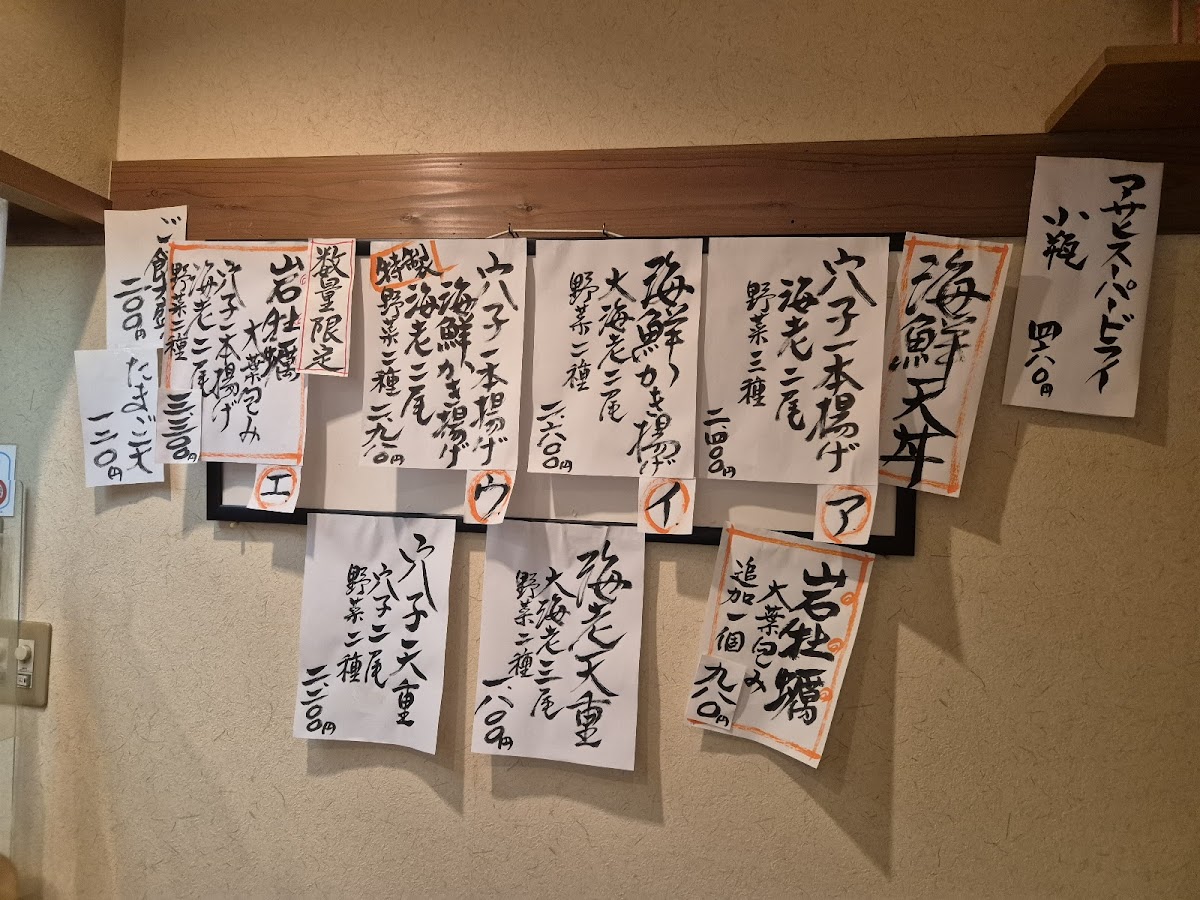 アサヒスーパードライ
小瓶
四六〇円
海鮮天丼
穴子一本揚げ
海老二尾
野菜三種
二、四〇〇円
ア
海鮮かき揚げ
大海老二尾
野菜二種
二、六〇〇円
イ
特製
穴子一本揚げ
海鮮かき揚げ
海老二尾
野菜二種
二、九八〇円
ウ
数量限定
岩牡蠣
大葉包み
穴子一本揚げ
海老二尾
野菜二種
三、三〇〇円
エ
ご飯大盛
二〇〇円
たまご天
一二〇円
岩牡蠣
大葉包み
追加一個
九八〇円
海老天重
大海老三尾
野菜二種
一、八〇〇円
穴子天重
穴子二尾
野菜二種
二、二〇〇円